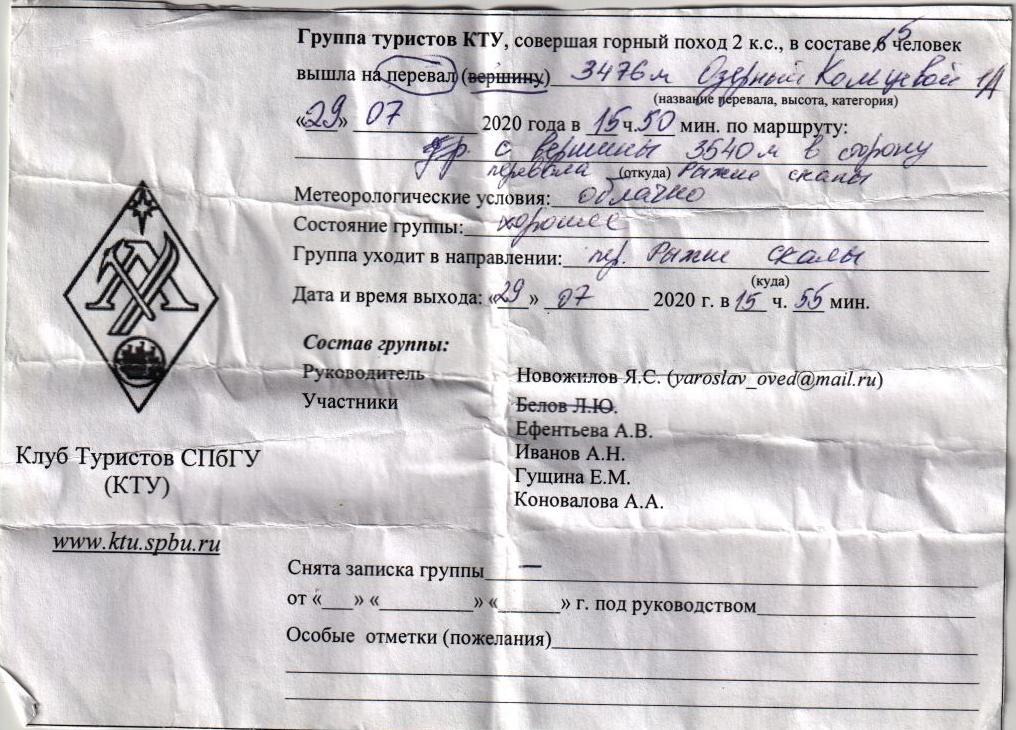 Группа туристов КТУ, совершая горный поход 2 к.с., в составе 5 человек
вышла на перевал (вершину) 3476 м Озерный Кольцевой 1А
(название перевала, высота, категория)
«29» 07 2020 года в 15 ч. 50 мин. по маршруту:
с вершины 3540 м в сторону
перевала Рыжие скалы
(откуда)
Метеорологические условия: облачно
Состояние группы: хорошее
Группа уходит в направлении: пер. Рыжие скалы
(куда)
Дата и время выхода: «29» 07 2020 г. в 15 ч. 55 мин.
Состав группы:
Руководитель Новожилов Я.С. (yaroslav_oved@mail.ru)
Участники Белов Л.Ю.
Ефентьева А.В.
Иванов А.Н.
Гущина Е.М.
Коновалова А.А.
Клуб Туристов СПбГУ
(КТУ)
www.ktu.spbu.ru
Снята записка группы —
от «___» «_________» «______» г. под руководством
Особые отметки (пожелания)